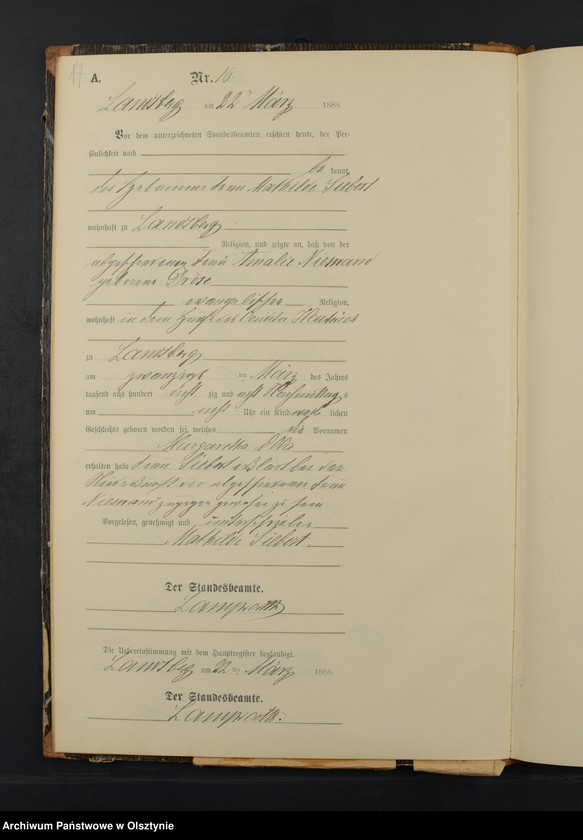 17
A.
Nr. 16
Landsberg am 22 ten März 1888.
Vor dem unterzeichneten Standesbeamten erschien heute, der Per-
sönlichkeit nach
be kannt,
die Hebamme Frau Mathilde Siebert
wohnhaft zu Landsberg
Religion, und zeigte an, daß von der
abgeschiedenen Frau Amalie Niemand
geborene Dröse
evangelischer Religion,
wohnhaft in dem Hause des
zu Landsberg
am zwanzigsten März des Jahres
tausend acht hundert acht zig und acht Nachmittags
um acht Uhr ein Kind weiblichen
Geschlechts geboren worden sei, welches die Vornamen
Margarethe Ella
erhalten habe. Frau Siebert erklärt bei der
Niederkunft der abgeschiedenen Frau
Niemand zugegen gewesen zu sein
Vorgelesen, genehmigt und unterschrieben
Mathilde Siebert.
Der Standesbeamte.
Die Uebereinstimmung mit dem Hauptregister beglaubigt.
Landsberg am 22 ten März 1888.
Der Standesbeamte.
Archiwum Państwowe w Olsztynie